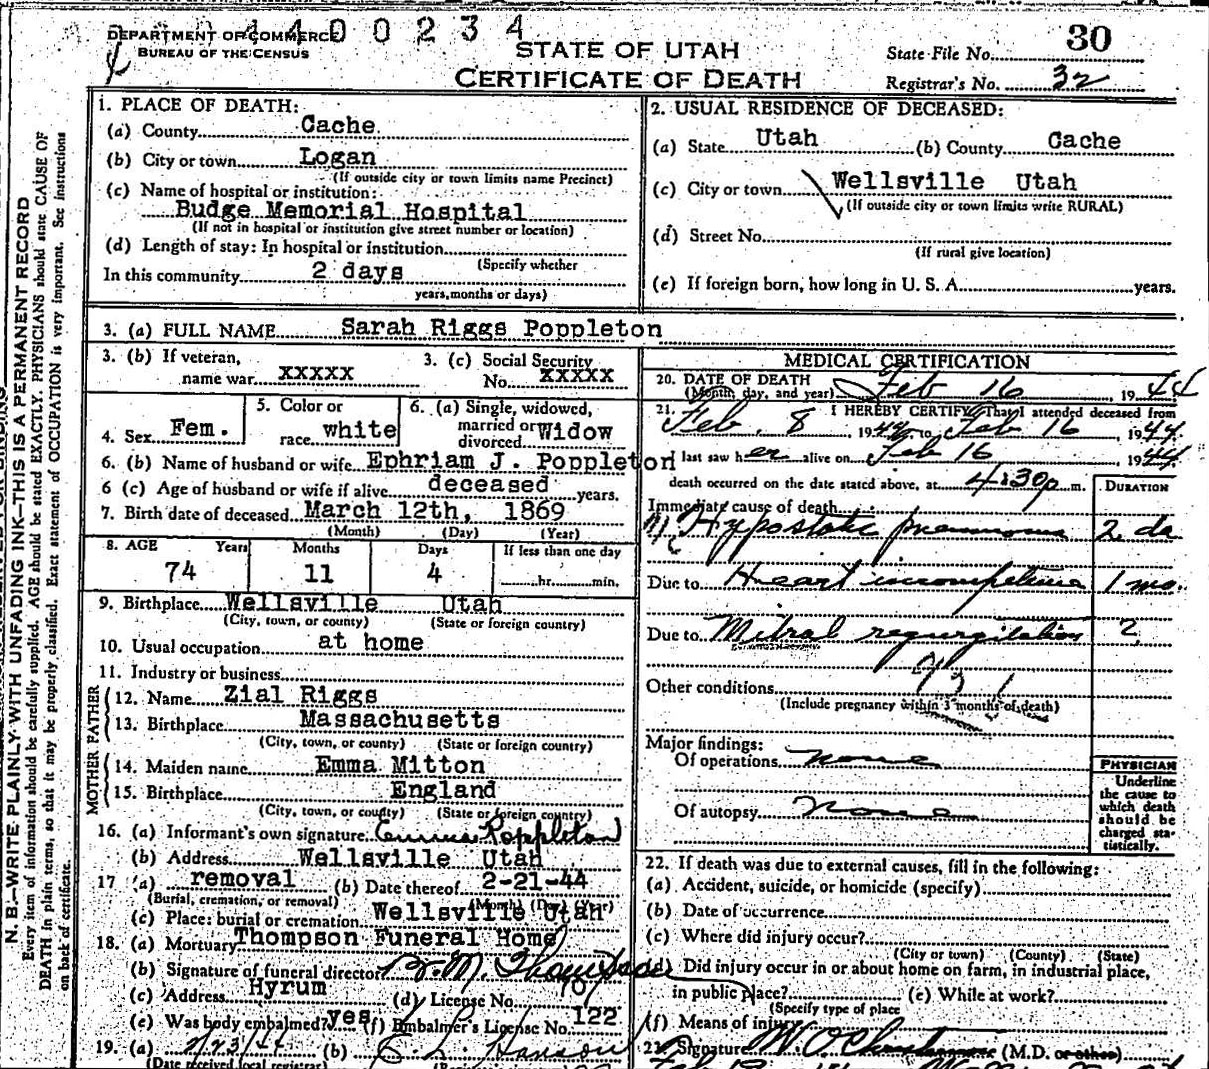 4400234
DEPARTMENT OF COMMERCE
BUREAU OF THE CENSUS
STATE OF UTAH
CERTIFICATE OF DEATH
State File No. 30
Registrar's No. 32
N. B.—WRITE PLAINLY WITH UNFADING INK—THIS IS A PERMANENT RECORD
Every item of information should be carefully supplied. AGE should be stated EXACTLY. PHYSICIANS should state CAUSE OF
DEATH in plain terms, so that it may be properly classified. Exact statement of OCCUPATION is very important. See instructions
on back of certificate.
1. PLACE OF DEATH:
(a) County Cache
(b) City or town Logan
(If outside city or town limits name Precinct)
(c) Name of hospital or institution:
Budge Memorial Hospital
(If not in hospital or institution give street number or location)
(d) Length of stay: In hospital or institution
(Specify whether
In this community 2 days
years, months or days)
2. USUAL RESIDENCE OF DECEASED:
(a) State Utah (b) County Cache
(c) City or town Wellsville Utah
(If outside city or town limits write RURAL)
(d) Street No.
(If rural give location)
(e) If foreign born, how long in U. S. A. years.
3. (a) FULL NAME Sarah Riggs Poppleton
3. (b) If veteran,
name war XXXXX
3. (c) Social Security
No. XXXXX
4. Sex Fem.
5. Color or
race white
6. (a) Single, widowed,
married or
divorced Widow
6. (b) Name of husband or wife Ephriam J. Poppleton
6 (c) Age of husband or wife if alive deceased years.
7. Birth date of deceased March 12th, 1869
(Month) (Day) (Year)
8. AGE Years Months Days If less than one day
74 11 4 hr. min.
9. Birthplace Wellsville Utah
(City, town, or county) (State or foreign country)
10. Usual occupation at home
11. Industry or business
FATHER
12. Name Zial Riggs
13. Birthplace Massachusetts
(City, town, or county) (State or foreign country)
MOTHER
14. Maiden name Emma Mitton
15. Birthplace England
(City, town, or county) (State or foreign country)
16. (a) Informant's own signature Poppleton
(b) Address Wellsville Utah
17 (a) removal (b) Date thereof 2-21-44
(Burial, cremation, or removal) (Month) (Day) (Year)
(c) Place: burial or cremation Wellsville Utah
18. (a) Mortuary Thompson Funeral Home
(b) Signature of funeral director Thompson
(c) Address Hyrum (d) License No. 107
(e) Was body embalmed? yes (f) Embalmer's License No. 122
19. (a) 2/23/44 (b) Hanson
(Date received local registrar)
MEDICAL CERTIFICATION
20. DATE OF DEATH
(Month, day, and year) Feb 16 1944
21. I HEREBY CERTIFY That I attended deceased from
Feb. 8 1944, to Feb 16 1944.
I last saw her alive on Feb 16 1944
death occurred on the date stated above, at 4:30p m.
DURATION
Immediate cause of death
Hypostatic pneumonia 2 da
Due to Heart incompetence 1 mo.
Due to Mitral regurgitation 2
Other conditions
(Include pregnancy within 3 months of death)
Major findings:
Of operations none
Of autopsy none
PHYSICIAN
Underline
the cause to
which death
should be
charged sta-
tistically.
22. If death was due to external causes, fill in the following:
(a) Accident, suicide, or homicide (specify)
(b) Date of occurrence
(c) Where did injury occur?
(City or town) (County) (State)
(d) Did injury occur in or about home on farm, in industrial place,
in public place? (e) While at work?
(Specify type of place
(f) Means of injury
Signature (M.D. or other)